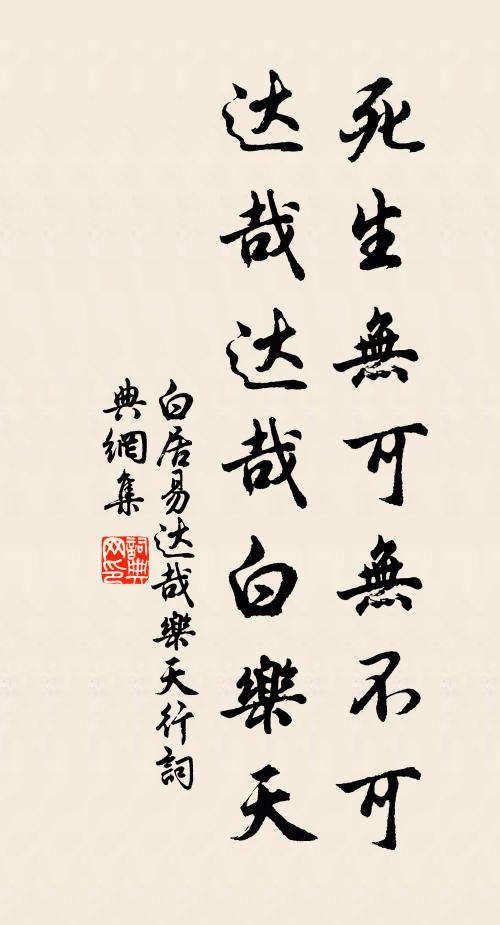 死生無可無不可
达哉达哉白樂天
白居易达哉樂天行詞
典網集
詞典网印